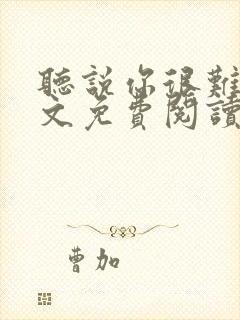 聽說你很難
文免費閱讀
曹加